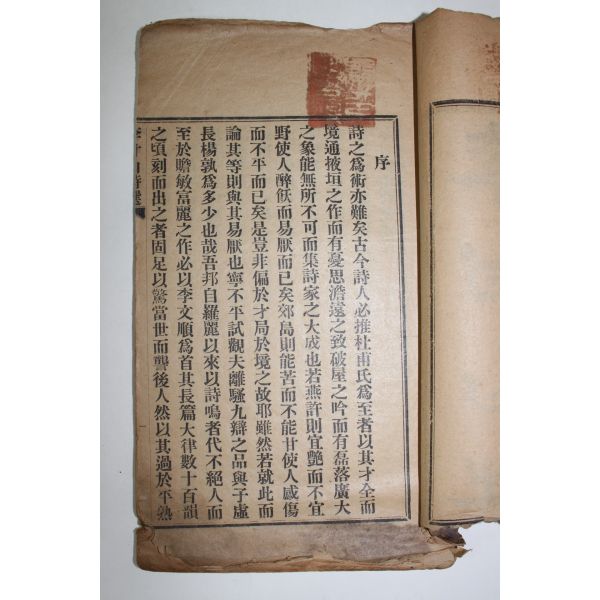 序
詩之爲術亦難矣古今詩人必推杜甫氏爲至者以其才全而
境通掖垣之作而有憂思澹遠之致破屋之吟而有磊落廣大
之象能無所不可而集詩家之大成也若燕許則宜艶而不宜
野使人醉飫而易厭而已矣郊島則能苦而不能甘使人慼傷
而不平而已矣是豈非偏於才局於境之故耶雖然若就此而
論其等則與其易厭也寧不平試觀夫離騷九辯之品與子虛
長楊孰爲多少也哉吾邦自羅麗以來以詩鳴者代不絕人而
至於贍敏富麗之作必以李文順爲首其長篇大律數十百韻
之頃刻而出之者固足以驚當世而聾後人然以其過於平熟